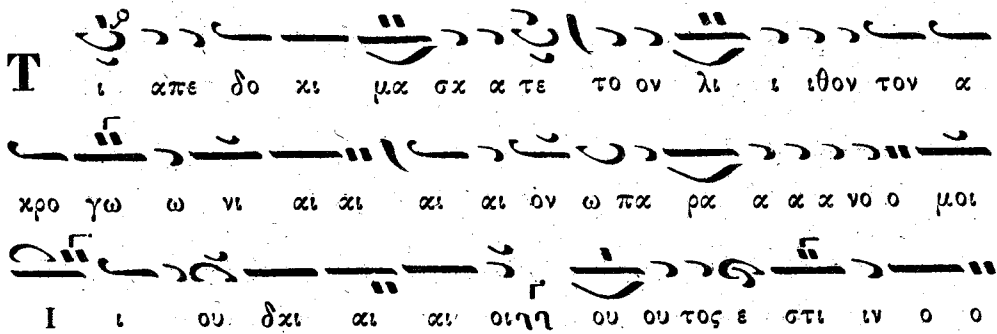 Τ ι απε δο κι μα σκ α τε το ον λι ι ιθον τον α
κρο γω ω νι αι αι αι αι ον ω πα ρα α α α νο ο μοι
Ι ι ου δαι αι αι οι ου ου τος ε στι ιν ο ο